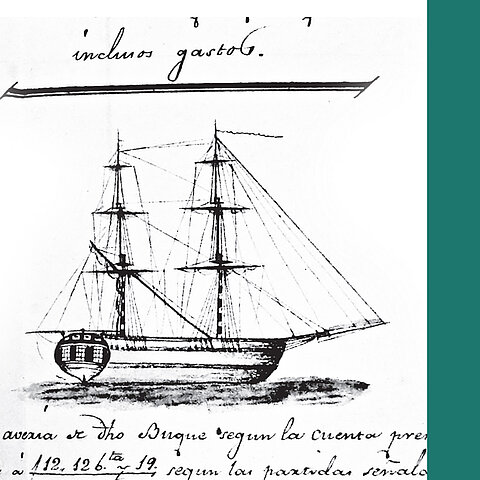 inclusos gastos.
averia de dho Buque segun la cuenta pre
à 112. 126.ta y 19. segun las partidas señala